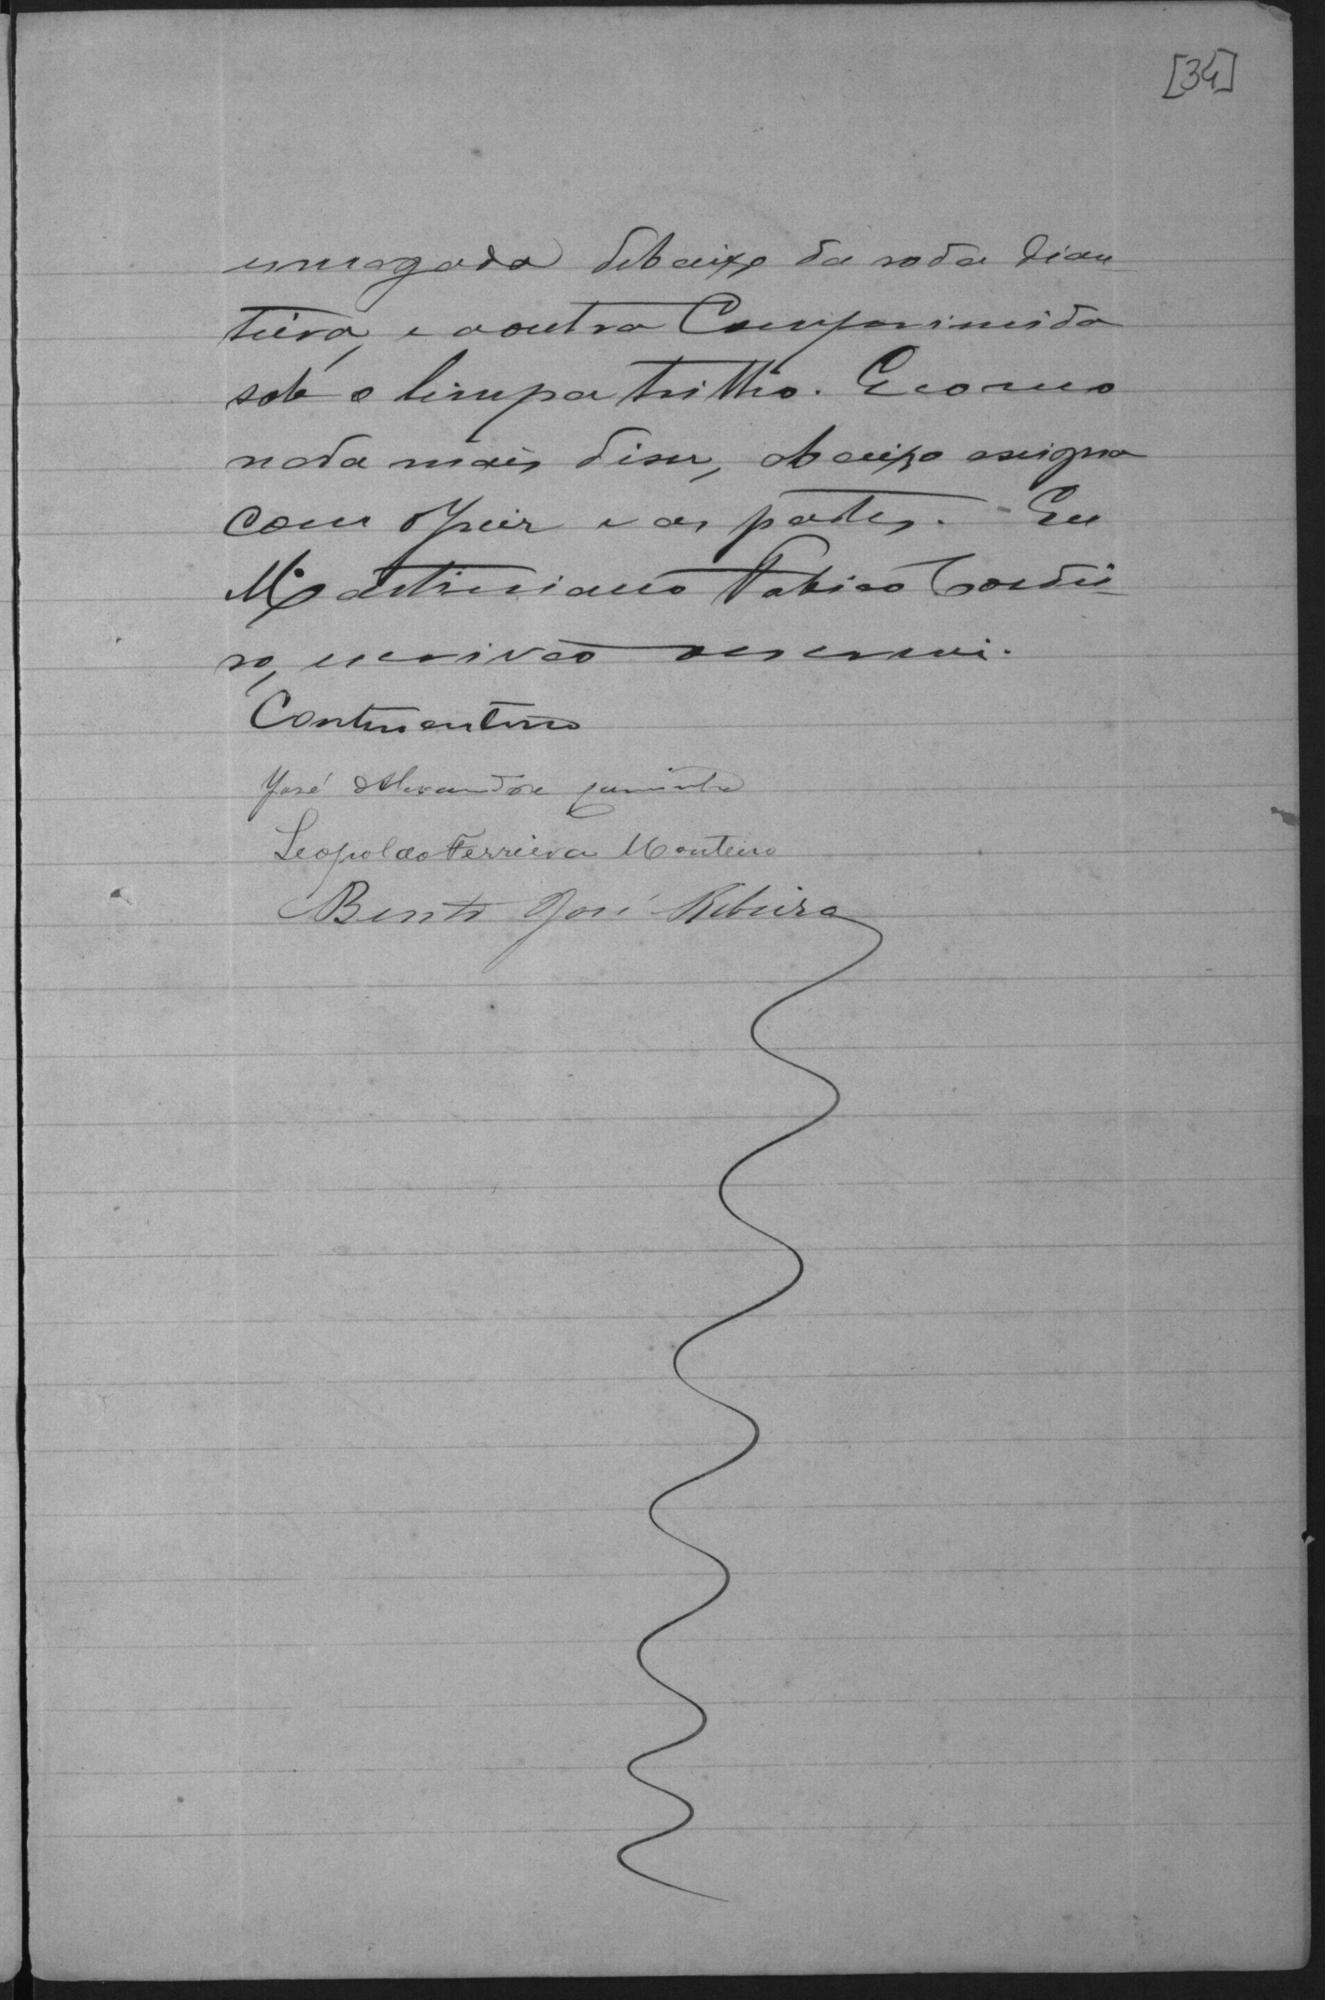 [34]
esmagada debaixo da roda dian
teira, e a outra Comprimida
sob o limpa trilho. E como
nada mais disse, abaixo assigna
com o Juiz e as partes. Eu
Martiniano Fabião Cordei
ro, escrivão o escrevi.
Continentino
José Alexandre
Leopoldo Ferreira Monteiro
Bento José Ribeiro